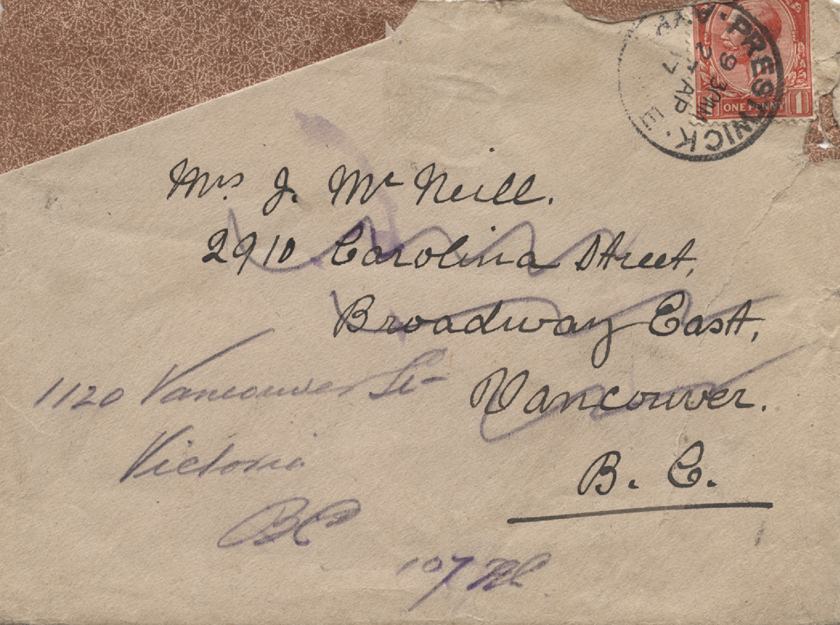 PRESTWICK.
9 30AM
AP
17
ONE PENNY 1
Mrs J. Mc Neill.
2910 Carolina Street,
Broadway East,
Vancouver.
B. C.
1120 Vancouver St
Victoria
BC
107